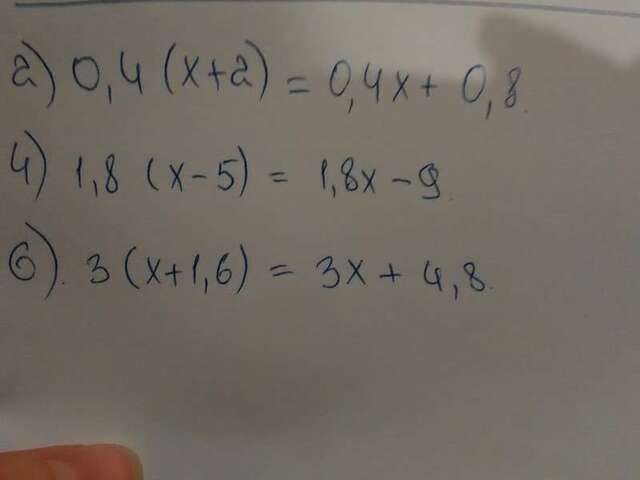 2) 0,4 (x+2) = 0,4x + 0,8.
4) 1,8 (x-5) = 1,8x - 9.
6). 3 (x+1,6) = 3x + 4,8.